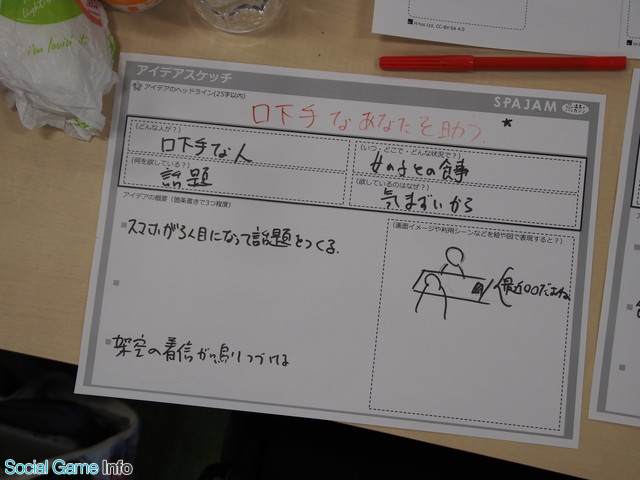 i'm lovin' it
Virtus Ltd. CC-BY-SA 4.0
アイデアスケッチ
SPAJAM
アイデアのヘッドライン(25字以内)
口下手なあなたを助う
(どんな人が?)
口下手な人
(いつ、どこで・どんな状況で?)
女の子との食事
(何を欲している?)
話題
(欲しているのはなぜ?)
気まずいから
アイデアの概要(箇条書きで3つ程度)
スマホが3人目になって話題をつくる.
架空の着信が鳴りつづける
(画面イメージや利用シーンなどを絵や図で表現すると?)
最近○○だよね
Social Game Info